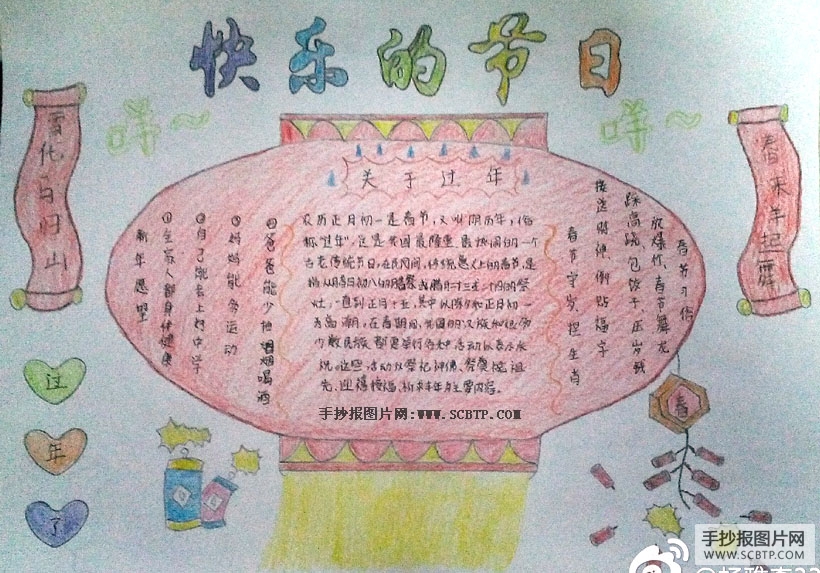 快乐的节日
咩~
咩~
雪化马归山
春来羊起舞
关于过年
农历正月初一是春节，又叫阴历年，俗
称“过年”，这是我国最隆重、最热闹的一个
古老传统节日，在民间，传统意义上的春节，是
指从腊月初八的腊祭或腊月二十三或二十四的祭
灶，一直到正月十五，其中以除夕和正月初一
为高潮，在春节期间，我国的汉族和很多
少数民族都要举行各种活动以表示庆
祝。这些活动以祭祀神佛、祭奠祖
先、迎禧接福、祈求丰年为主要内容。
春节习俗
放爆竹、春节舞龙
踩高跷、包饺子、压岁钱
接送财神、倒贴福字
春节守岁、捏生肖
④爸爸能少抽烟喝酒
③妈妈能多运动
②自己能考上好中学
①全家人都身体健康
新年愿望
过
年
了
春
手抄报图片网:www.SCBTP.com
手抄报图片网
www.SCBTP.COM